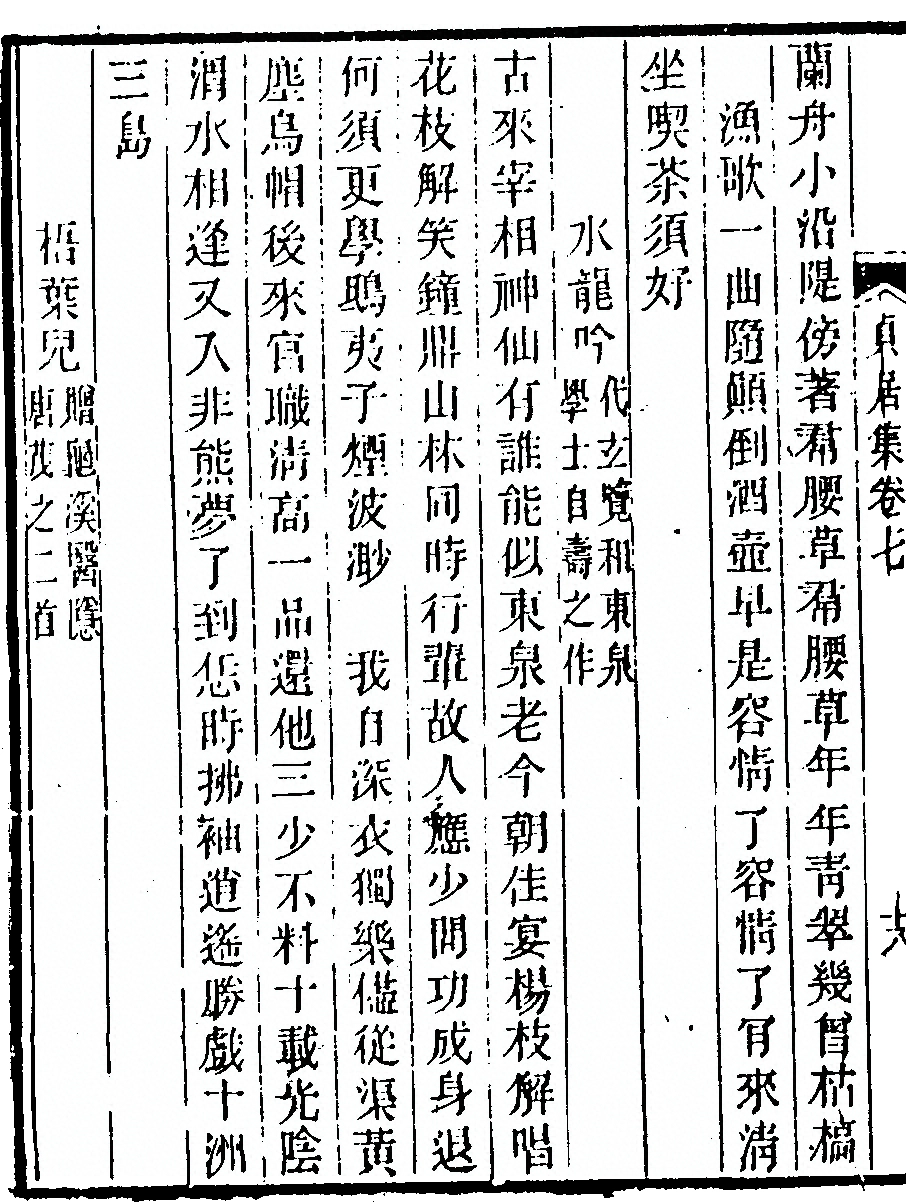 貞居集卷七
蘭舟小沿隄傍著裙腰草裙腰草年年青翠幾曾枯槁
漁歌一曲隨顛倒酒壺早是容情了容情了肎來清
坐喫茶須好
水龍吟代玄覽和東泉學士自壽之作
古來宰相神仙有誰能似東泉老今朝佳宴楊枝解唱
花枝解笑鐘鼎山林同時行輩故人應少問功成身退
何須更學鴟夷子煙波渺 我自深衣獨樂儘從渠黃
塵烏帽後來官職清高一品還他三少不料十載光陰
渭水相逢又入非熊夢了到恁時拂袖逍遙勝戲十洲
三島
梧葉兒贈龜溪醫隱唐茂之二首